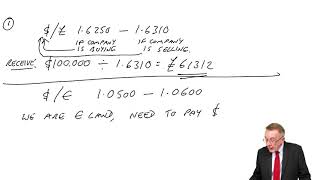 ①
$/£ 1.6250 – 1.6310
IF COMPANY IS BUYING
IF COMPANY IS SELLING.
RECEIVE: $100,000 ÷ 1.6310 = £61312
$/€ 1.0500 – 1.0600
WE ARE € LAND, NEED TO PAY $